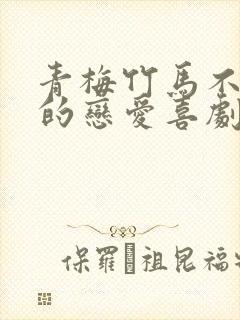 青梅竹馬不
的戀愛喜劇
保羅祖昆福